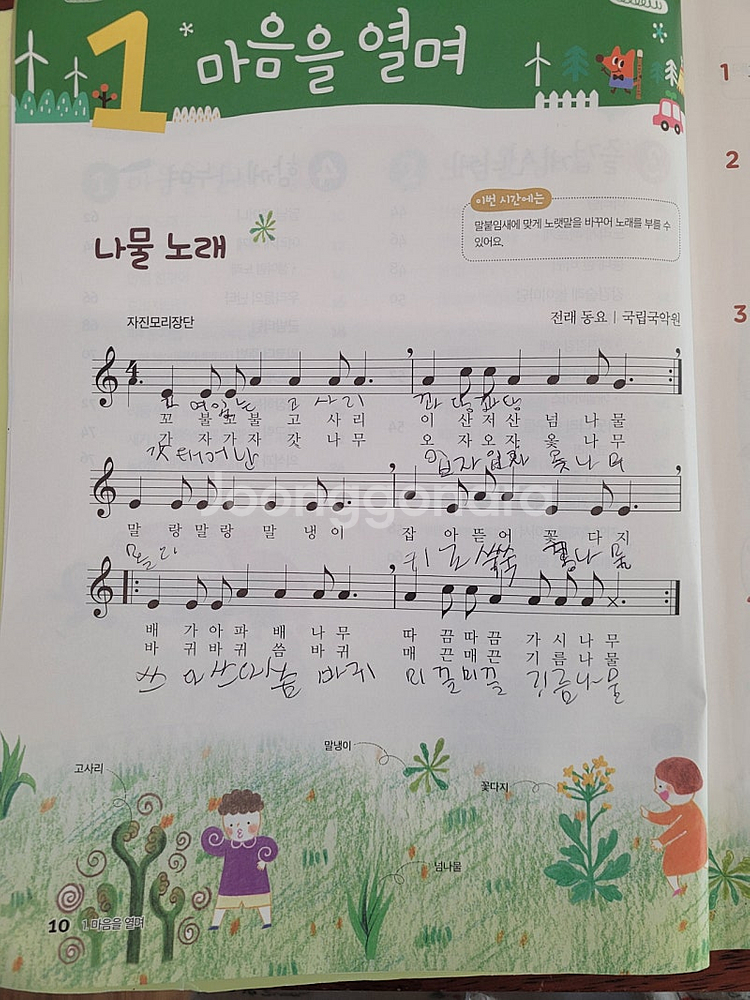 1 마음을 열며
1
2
이번 시간에는
말붙임새에 맞게 노랫말을 바꾸어 노래를 부를 수
있어요.
나물 노래
3
자진모리장단
전래 동요 | 국립국악원
고 사리
꼬 불꼬 불 고 사 리 이 산저 산 넘 나 물
가 자가 자 갖 나 무 오 자오 자 옻 나 무
Joonggonara
말 랑말 랑 말 냉 이 잡 아뜯 어 꽃 다 지
배 가아 파 배 나 무 따 끔따 끔 가 시 나 무
바 귀바 귀 씀 바 귀 매 끈매 끈 기 름 나 물
바귀 미끌미끌 나물
말냉이
고사리
꽃다지
넘나물
10 1 마음을 열며